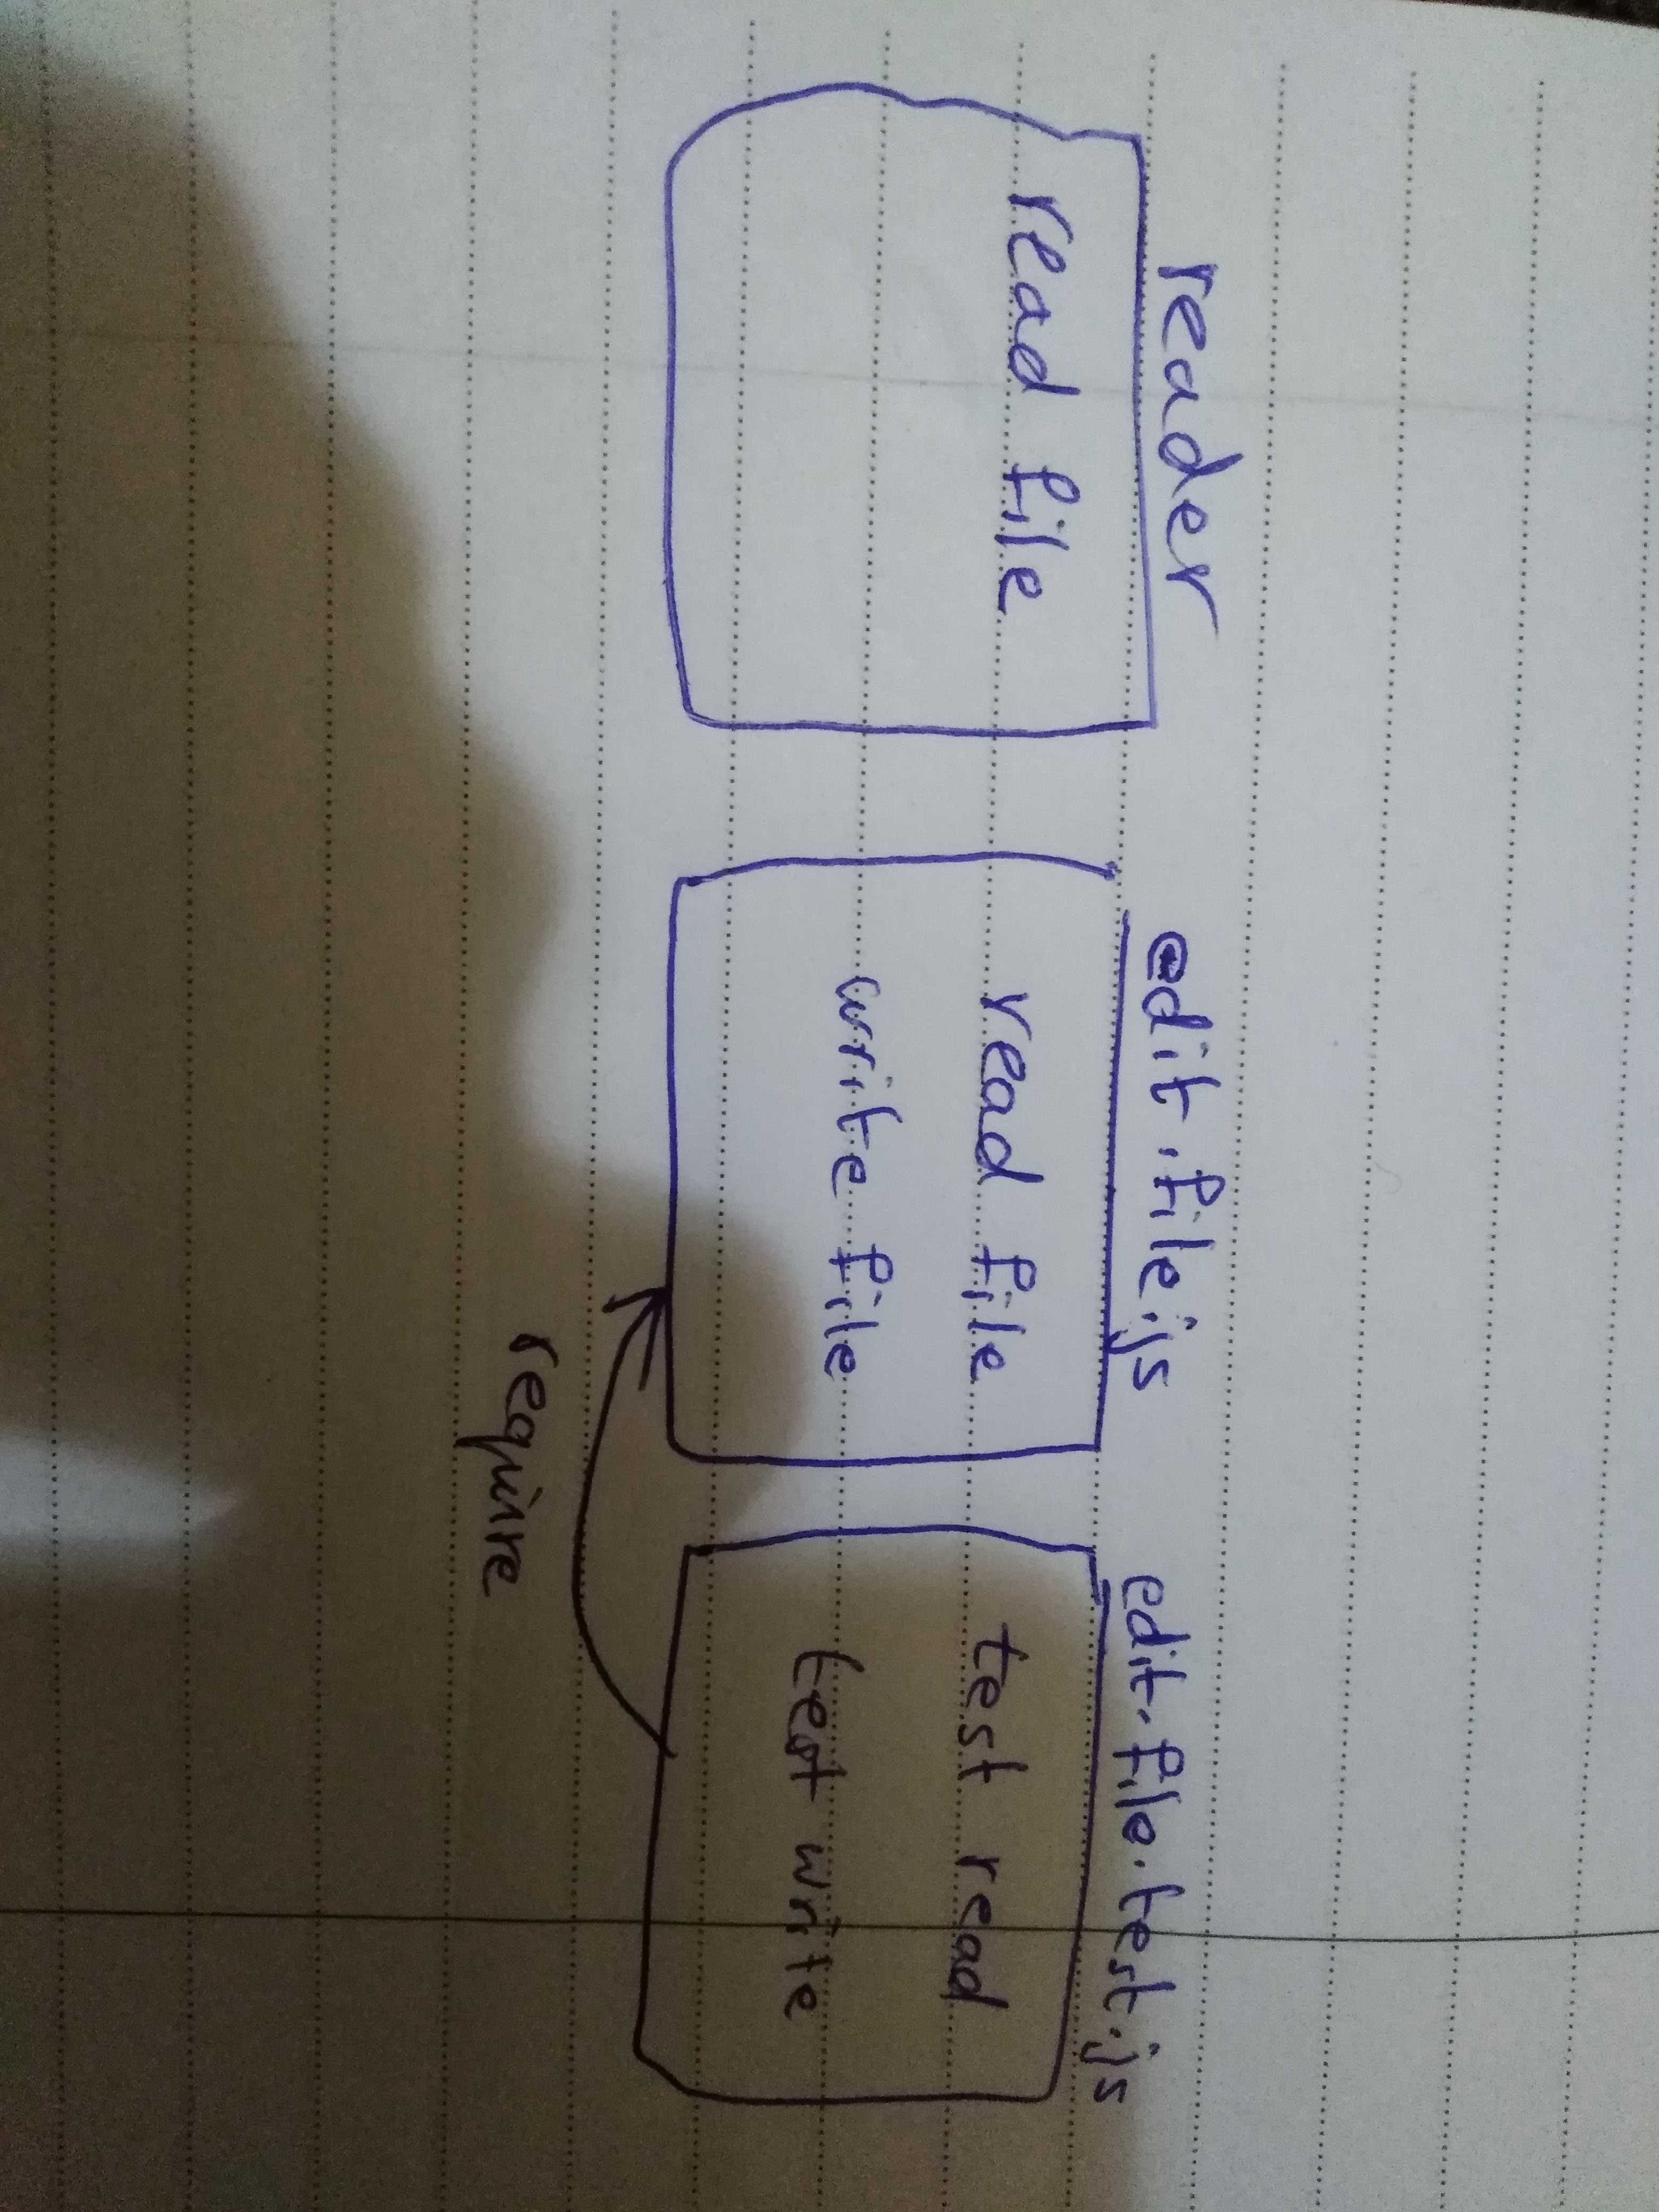 reader
read file
edit.file.js
read file
write file
edit.file.test.js
test read
test write
require